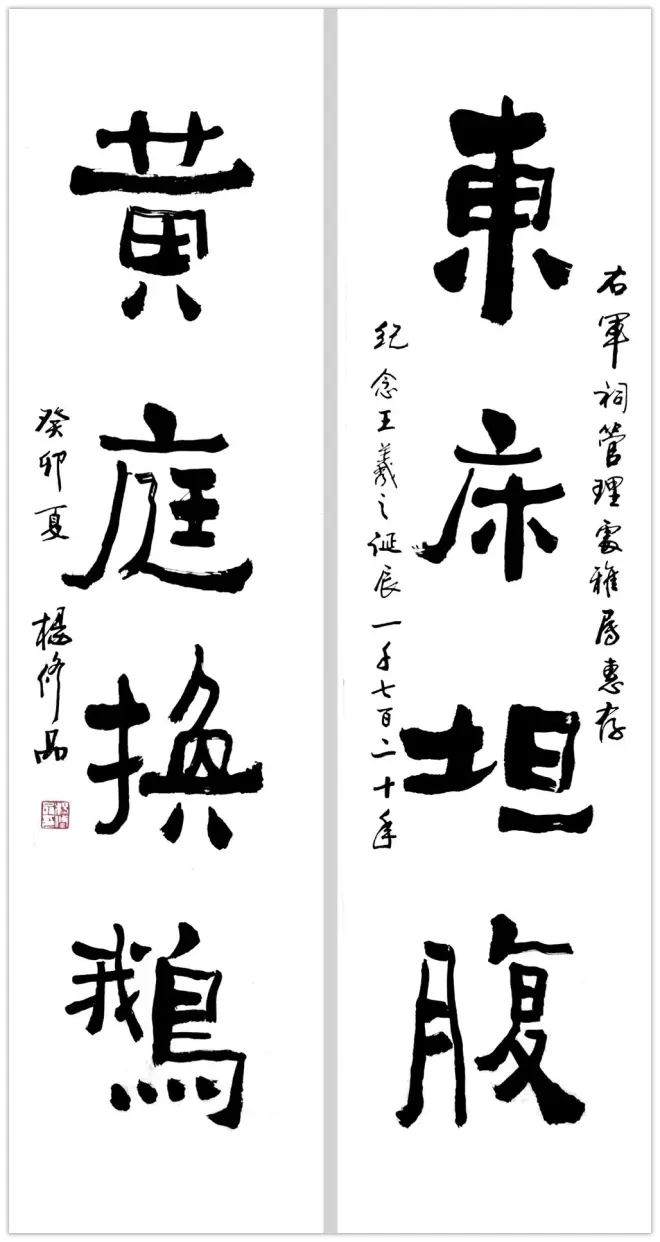 右軍祠管理處雅屬惠存
東床坦腹
紀念王羲之誕辰一千七百二十年
黄庭換鵝
癸卯夏 楊修品